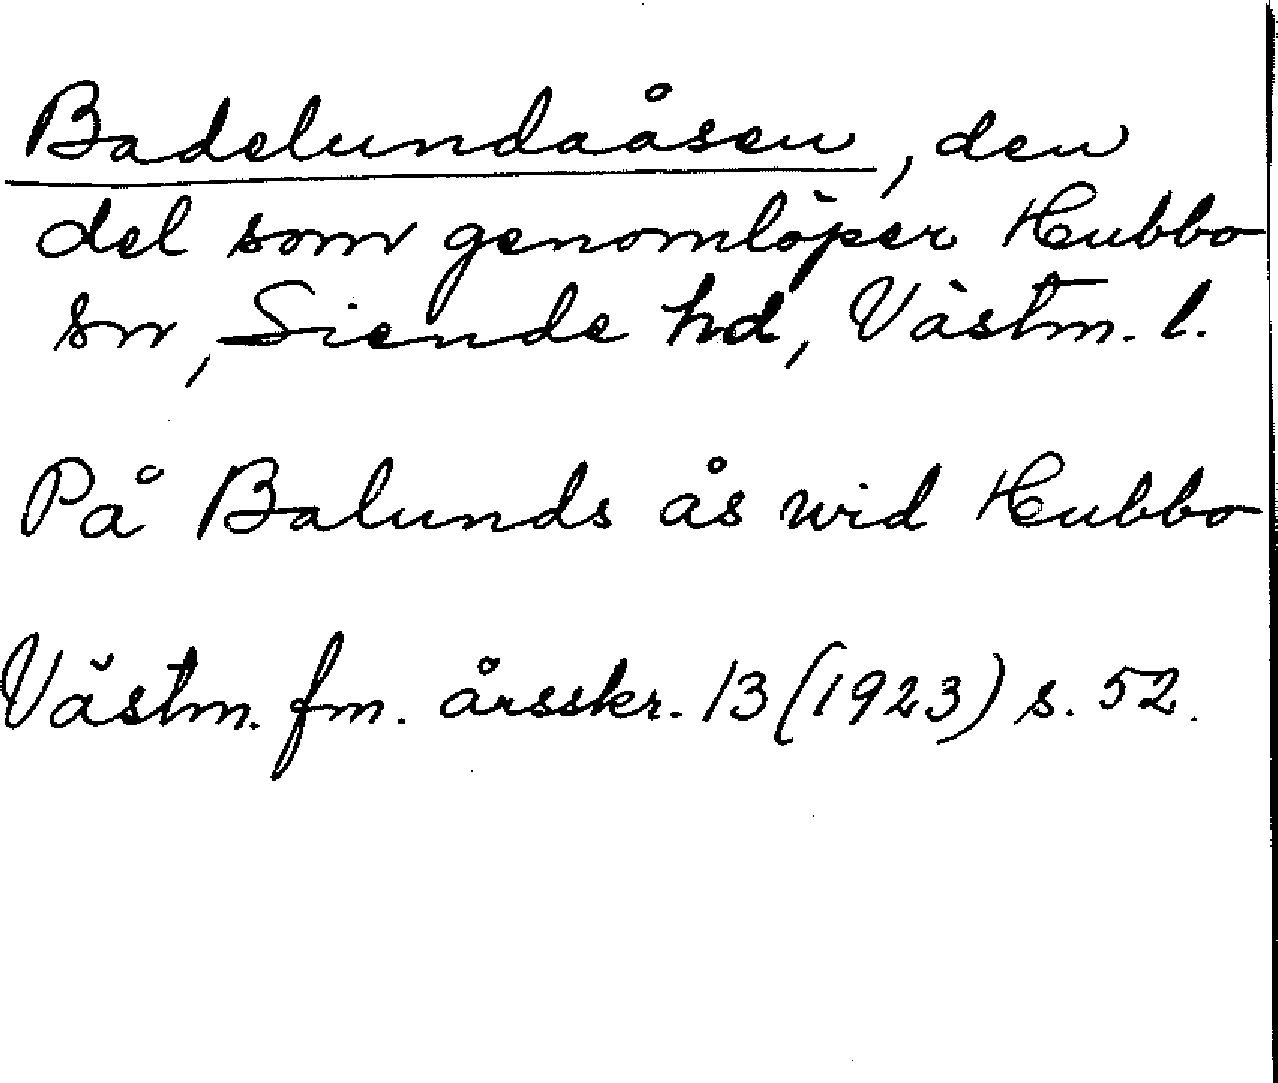 Badelundaåsen, den
del som genomlöper Hubbo
sn, Siende hd, Västm. l.
På Balunds ås wid Hubbo
Västm. fm. årsskr. 13 (1923) s. 52.